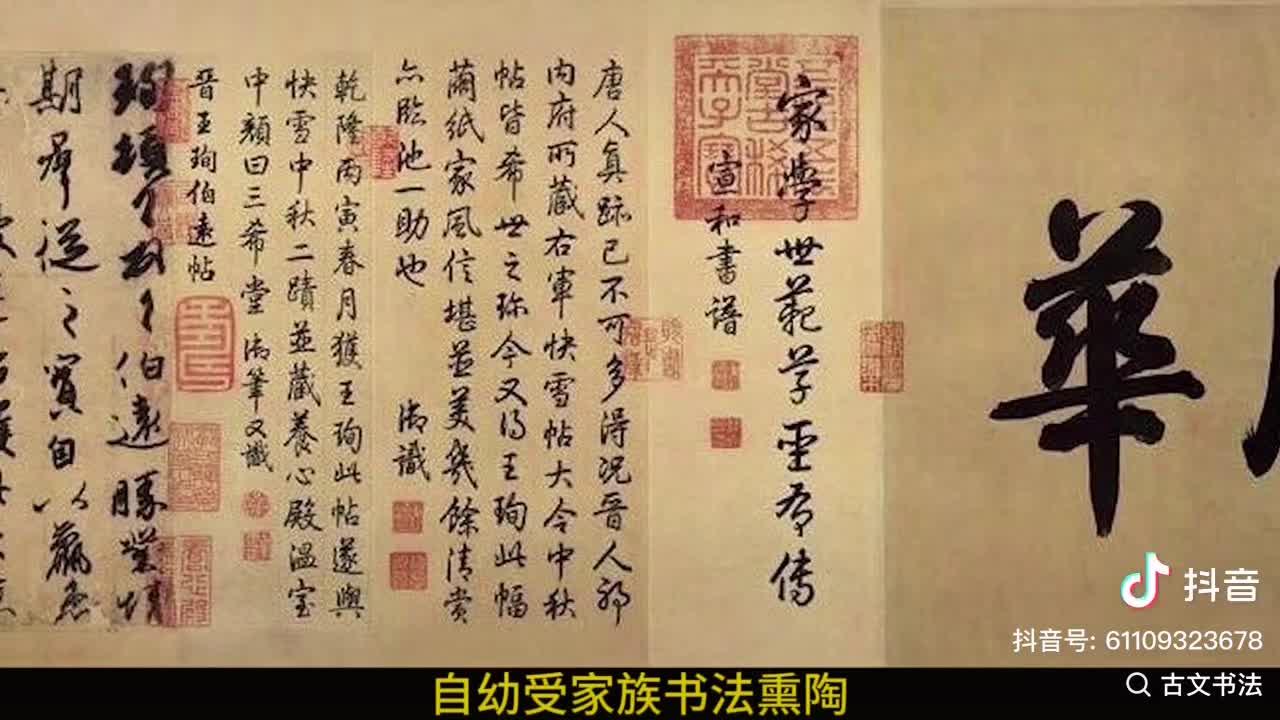 華
家學世範草聖有傳
宣和書譜
唐人真跡已不可多得況晉人耶
內府所藏右軍快雪帖大令中秋
帖皆希世之珍今又得王珣此幅
繭紙家風信堪並美幾餘清賞
亦臨池一助也 御識
乾隆丙寅春月獲王珣此帖遂與
快雪中秋二蹟並藏養心殿溫室
中顏曰三希堂 御筆又識
晉王珣伯遠帖
珣頓首頓首伯遠勝業情
期群從之寶自以羸患
抖音
抖音号: 61109323678
古文书法
自幼受家族书法熏陶